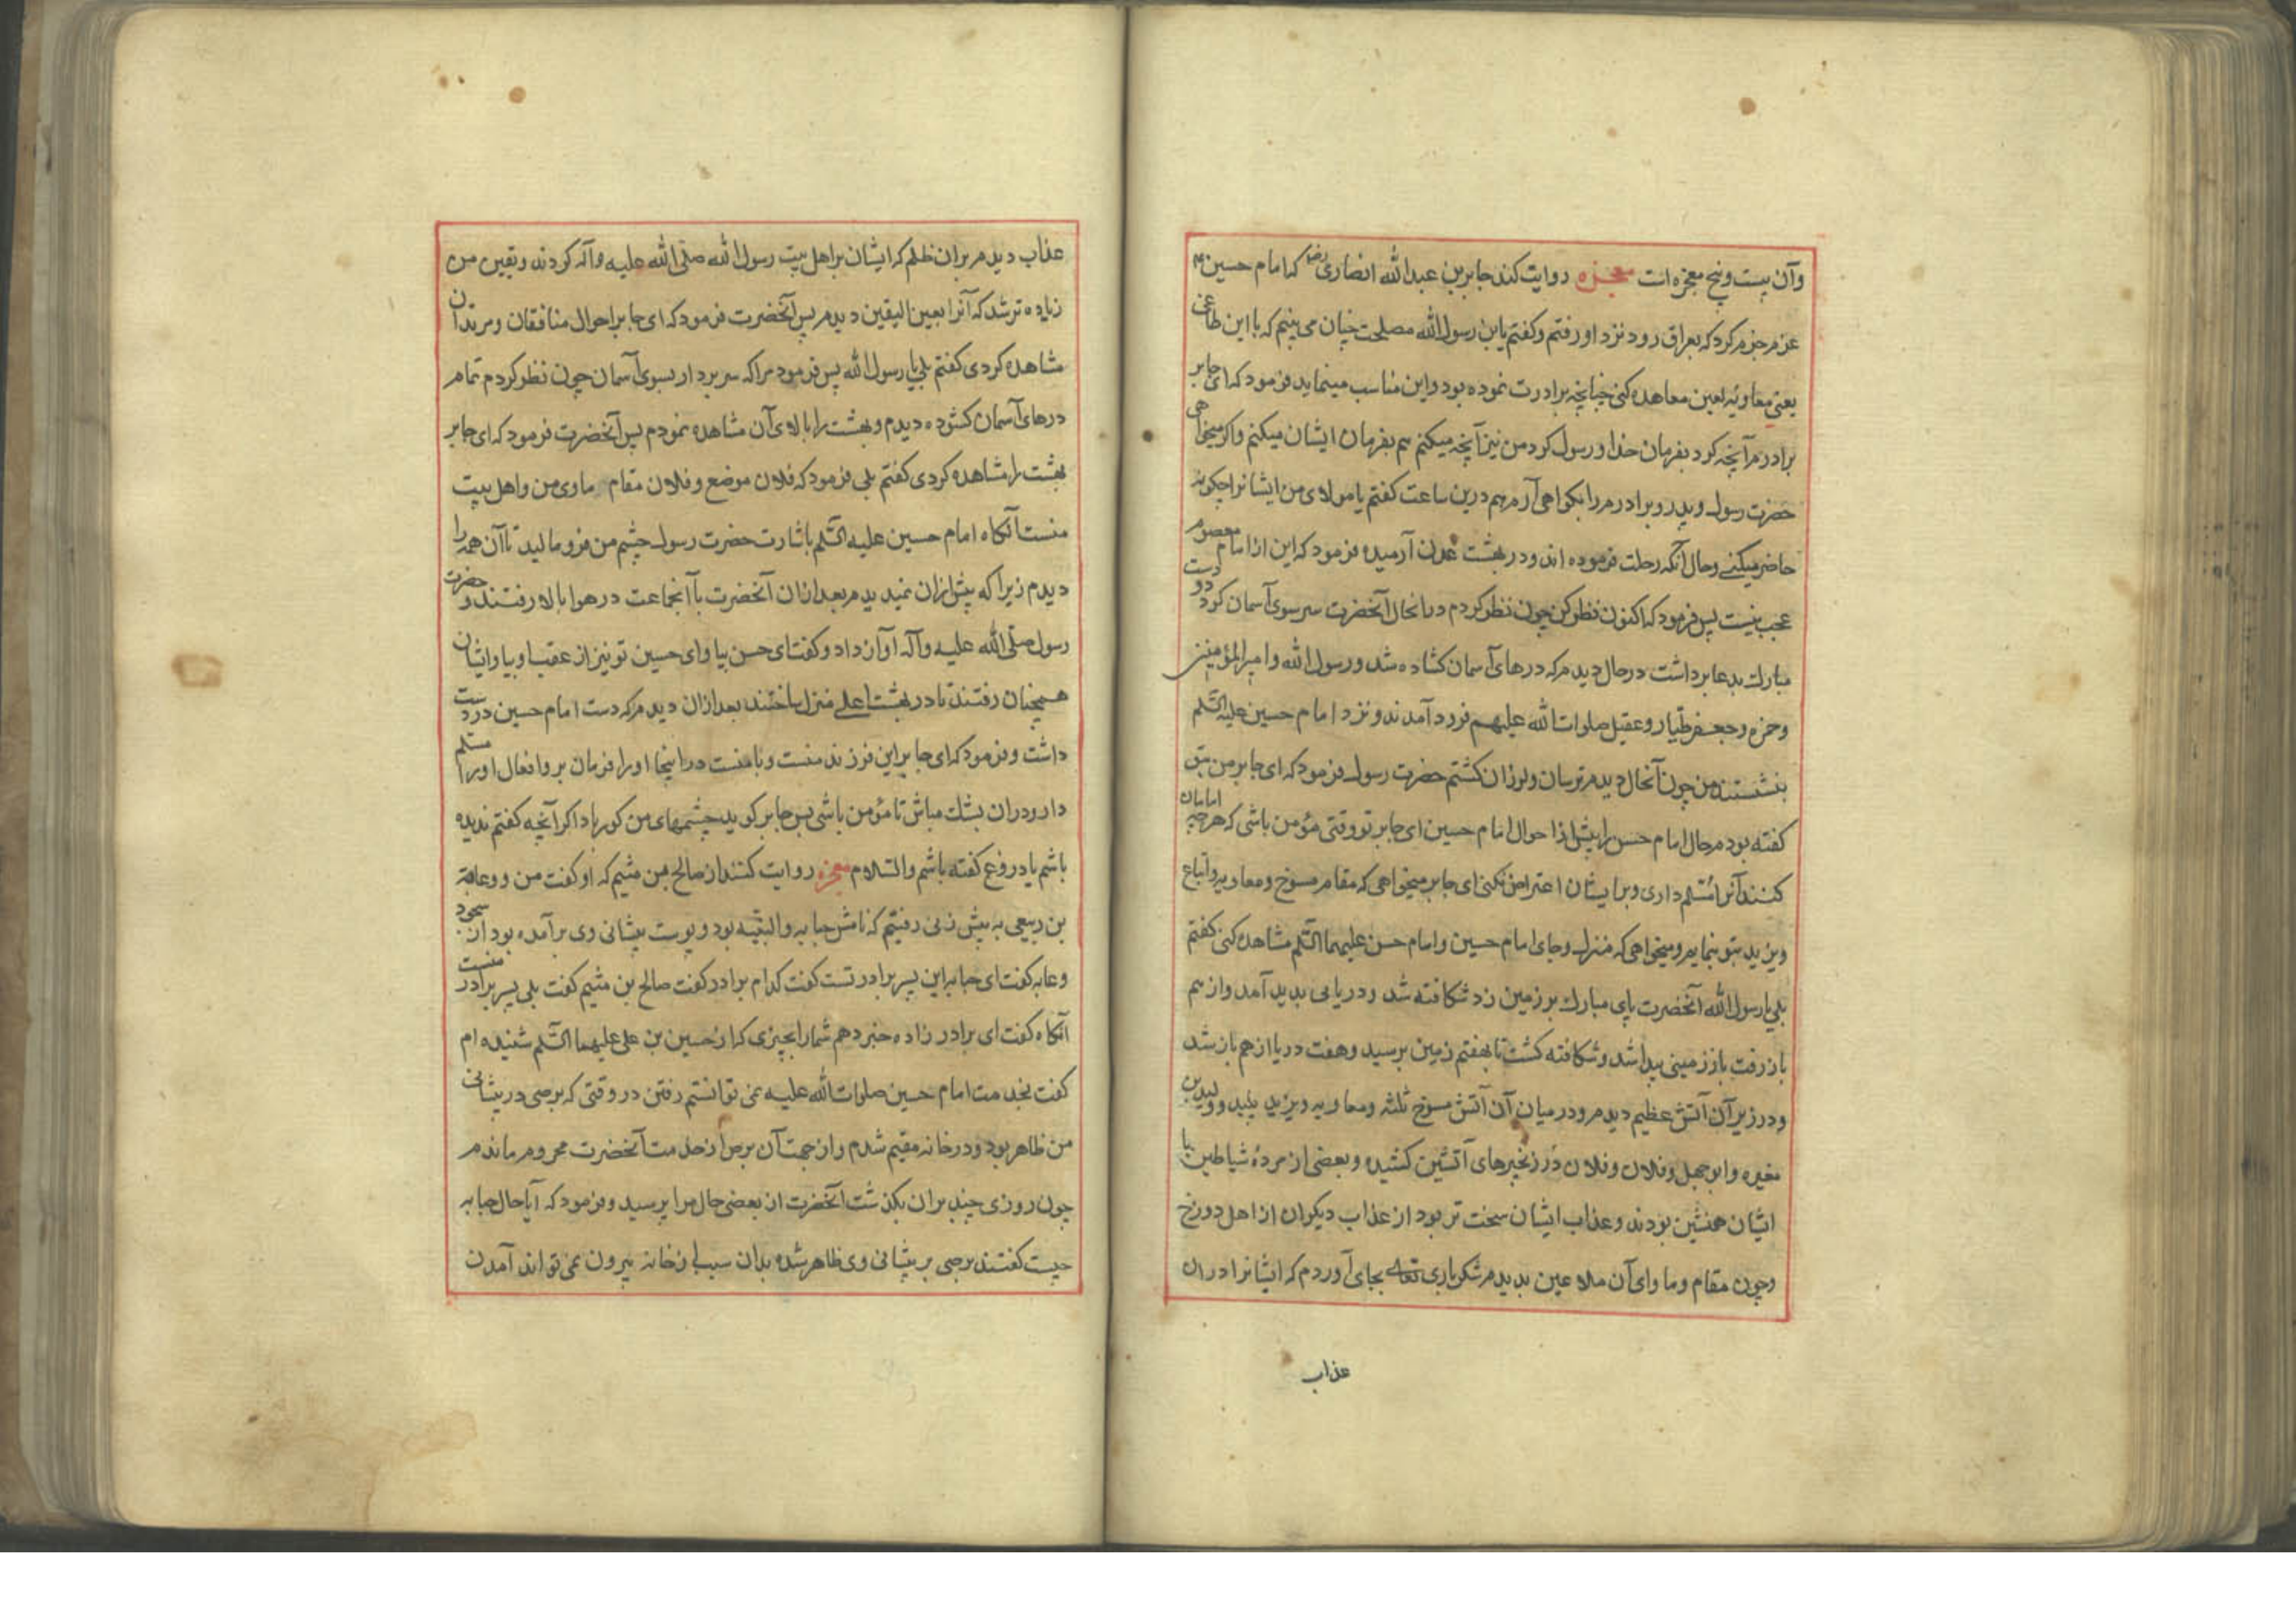 وآن بیست وپنج معجزه است معجزه روایت کند جابر بن عبدالله انصاری رض که امام حسین ع
عزم جزم کرد که بعراق رود نزد او رفتم وکفتم یابن رسول الله مصلحت چنان می بینم که با این طاغی
یعنی معاویه لعین معاهده کنی چنانچه برادرت نموده بود واین مناسب مینماید فرمود که ای جابر
برادرم آنچه کرد بفرمان خدا ورسول کرد من نیز آنچه میکنم هم بفرمان ایشان میکنم واکر میخواهی
حضرت رسول وپدر وبرادرم را بکواهی آرم هم درین ساعت کفتم یا مولای من ایشانرا چکونه
حاضر میکنی وحال آنکه رحلت فرموده اند ودر بهشت عدن آرمیده فرمود که این از امام معصوم
عجب نیست پس فرمود که اکنون نظر کن چون نظر کردم درانحال آنحضرت سر سوی آسمان کرد ودست
مبارک بدعا برداشت درحال دیدم که درهای آسمان کشاده شد ورسول الله وامیرالمؤمنین
وحمزه وجعفر طیار وعقیل صلوات الله علیهم فرود آمدند ونزد امام حسین علیه السلم
بنشستند من چون آنحال دیدم ترسان ولرزان کشتم حضرت رسول فرمود که ای جابر من بتو
کفته بودم حال امام حسن را پیش از احوال امام حسین ای جابر تو وقتی مؤمن باشی که هرچه امامان
کنند آنرا مسلم داری وبر ایشان اعتراض نکنی ای جابر میخواهی که مقام مسوخ ومعاویه واتباع
ویزید بتو بنمایم ومیخواهی که منزل وجای امام حسین وامام حسن علیهما السلم مشاهده کنی کفتم
بلی یا رسول الله آنحضرت پای مبارک بر زمین زد شکافته شد ودریایی بدید آمد واز هم
باز رفت باز زمینی پیدا شد وشکافته کشت تا بهفتم زمین برسید وهفت دریا از هم باز شد
ودر زیر آن آتش عظیم دیدم ودر میان آن آتش مسوخ ثلثه ومعاویه ویزید پلید وولید بن
مغیره وابوجهل وفلان وفلان در زنجیرهای آتشین کشیده وبعضی از مردهٔ شیاطین با
ایشان همنشین بودند وعذاب ایشان سخت تر بود از عذاب دیکران از اهل دوزخ
وچون مقام وماوای آن ملاعین بدیدم شکر باری تعالی بجای آوردم که ایشانرا دران
عذاب
عذاب دیدم بران ظلم که ایشان بر اهل بیت رسول الله صلی الله علیه وآله کردند ویقین من
زیاده تر شد که آنرا بعین الیقین دیدم پس آنحضرت فرمود که ای جابر احوال منافقان ومرتدان
مشاهده کردی کفتم بلی یا رسول الله پس فرمود مرا که سر بردار بسوی آسمان چون نظر کردم تمام
درهای آسمان کشوده دیدم وبهشت را بالای آن مشاهده نمودم پس آنحضرت فرمود که ای جابر
بهشت را مشاهده کردی کفتم بلی فرمود که فلان موضع وفلان مقام ماوی من واهل بیت
منست آنکاه امام حسین علیه السلم باشارت حضرت رسول چشم من فرو مالید تا آن همه را
دیدم زیرا که پیش ازان نمیدیدم بعد ازان آنحضرت با آنجماعت در هوا بالا رفتند وحضرت
رسول صلی الله علیه وآله آواز داد وکفت ای حسن بیا وای حسین تو نیز از عقب او بیا وایشان
همچنان رفتند تا در بهشت اعلی منزل ساختند بعد ازان دیدم که دست امام حسین در دست
داشت وفرمود که ای جابر این فرزند منست وبا منست در اینجا اورا فرمان بر وافعال اورا مسلم
دار ودران بشک مباش تا مؤمن باشی پس جابر کوید چشمهای من کور باد اکر آنچه کفتم ندیده
باشم یا دروغ کفته باشم والسلام معجزه روایت کنند از صالح بن میثم که او کفت من وعبایة
بن ربیعی به پیش زنی رفتیم که نامش حبابه والبیّه بود وپوست پیشانی وی برآمده بود از سجود
وعبایه کفت ای حبابه این پسر برادر تست کفت کدام برادر کفت صالح بن میثم کفت بلی پسر برادر منست
آنکاه کفت ای برادر زاده خبر دهم شما را بچیزی که از حسین بن علی علیهما السلم شنیده ام
کفت بخدمت امام حسین صلوات الله علیه نمی توانستم رفتن در وقتی که برصی در پیشانی
من ظاهر بود ودر خانه مقیم شدم واز جهت آن برص از خدمت آنحضرت محروم ماندم
چون روزی چند بران بکذشت آنحضرت از بعضی حال مرا پرسید وفرمود که آیا حال حبابه
چیست کفتند برصی بر پیشانی وی ظاهر شده بدان سبب از خانه بیرون نمی تواند آمدن